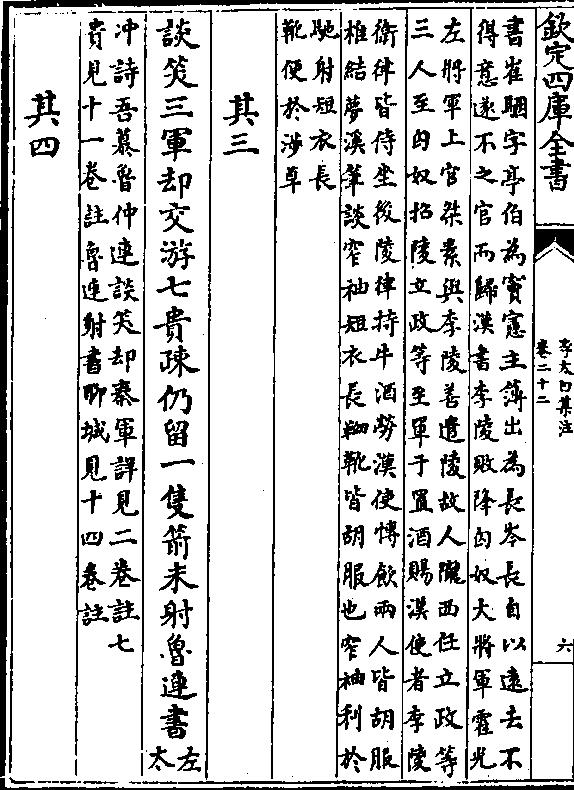 欽定四庫全書
李太白集注
卷二十二
六
書崔駰字亭伯為竇憲主簿出為長岑長自以遠去不
得意遂不之官而歸漢書李陵敗降匈奴大將軍霍光
左將軍上官桀素與李陵善遣陵故人隴西任立政等
三人至匈奴招陵立政等至單于置酒賜漢使者李陵
衛律皆侍坐後陵律持牛酒勞漢使愽飲兩人皆胡服
椎結夢溪筆談窄袖短衣長靿靴皆胡服也窄袖利於
馳射短衣長
靴便於涉草
其三
談笑三軍却交游七貴疎仍留一隻箭未射魯連書左
太
冲詩吾慕魯仲連談笑却秦軍詳見二卷註七
貴見十一卷註魯連射書聊城見十四卷註
其四